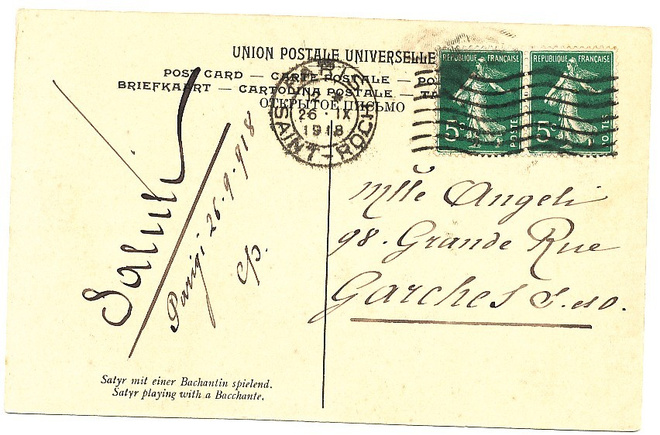 UNION POSTALE UNIVERSELLE
POST CARD — CARTE POSTALE — PO
BRIEFKAART — CARTOLINA POSTALE — TA
ОТКРЫТОЕ ПИСЬМО
PARIS
26 · IX
1918
SAINT-ROCH
RÉPUBLIQUE FRANÇAISE
5c
POSTES
RÉPUBLIQUE FRANÇAISE
5c
POSTES
Saluti
Parigi 26·9·918
Mlle Angeli
98. Grande Rue
Garches S. et O.
Satyr mit einer Bachantin spielend.
Satyr playing with a Bacchante.